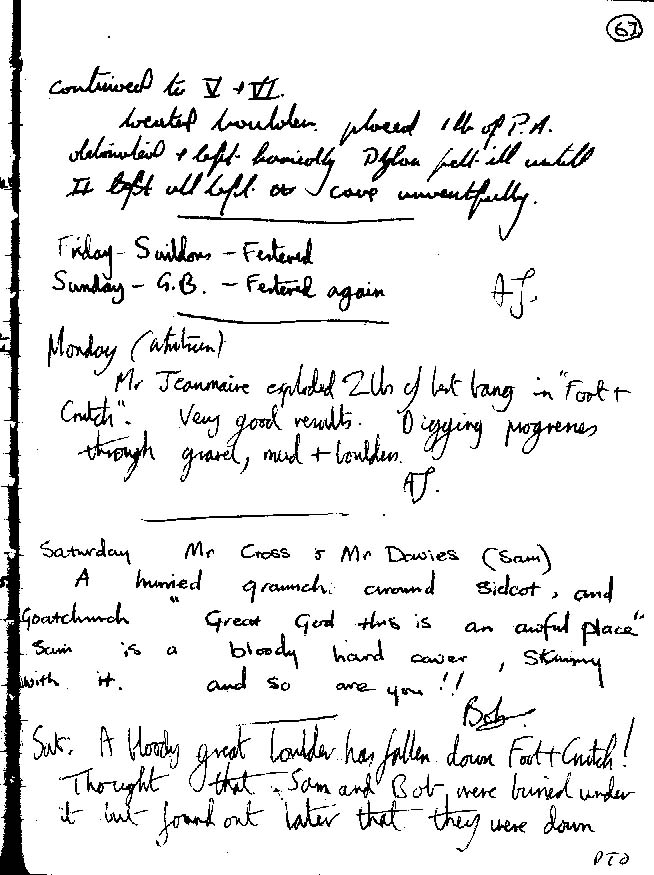 67
continued to V + VI.
located boulder. placed 1 lb of P.A.
detonated + left. basically Dylan felt ill untill
II left all left cave unventfully.
Friday - Swildons - Festered
Sunday - G.B. - Festered again
AJ.
Monday (Whitsun)
Mr Jeanmaire exploded 2 lbs of best bang in "Foot +
Crutch". Very good results. Digging progresses
through gravel, mud + boulders.
AJ.
Saturday Mr Cross & Mr Davies (Sam)
A hurried graunch around Sidcot, and
Goatchurch "Great God this is an awful place"
Sam is a bloody hard caver, Skinny
with it. and so are you!!
Bob.
Sat. A bloody great boulder has fallen down Foot + Crutch!
Thought that Sam and Bob were buried under
it but found out later that they were down
PTO